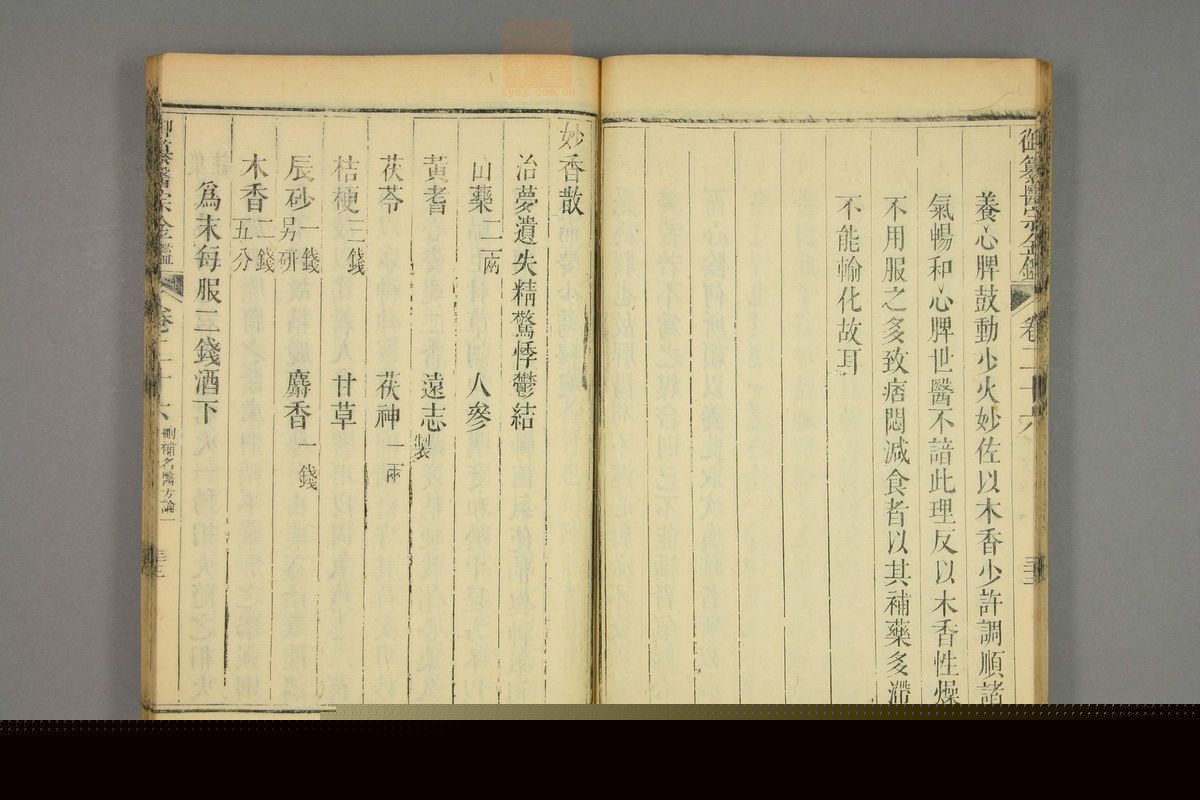 御纂醫宗金鑑 卷二十六
養心脾鼓動少火妙佐以木香少許調順諸
氣暢和心脾世醫不諳此理反以木香性燥
不用服之多致痞悶減食者以其補藥多滯
不能輸化故耳
妙香散
治夢遺失精驚悸鬱結
山藥二兩 人參
黃耆 遠志製
茯苓 茯神一兩
桔梗三錢 甘草
辰砂一錢另研 麝香一錢
木香二錢五分
為末每服二錢酒下
御纂醫宗金鑑 卷二十六 刪補名醫方論一